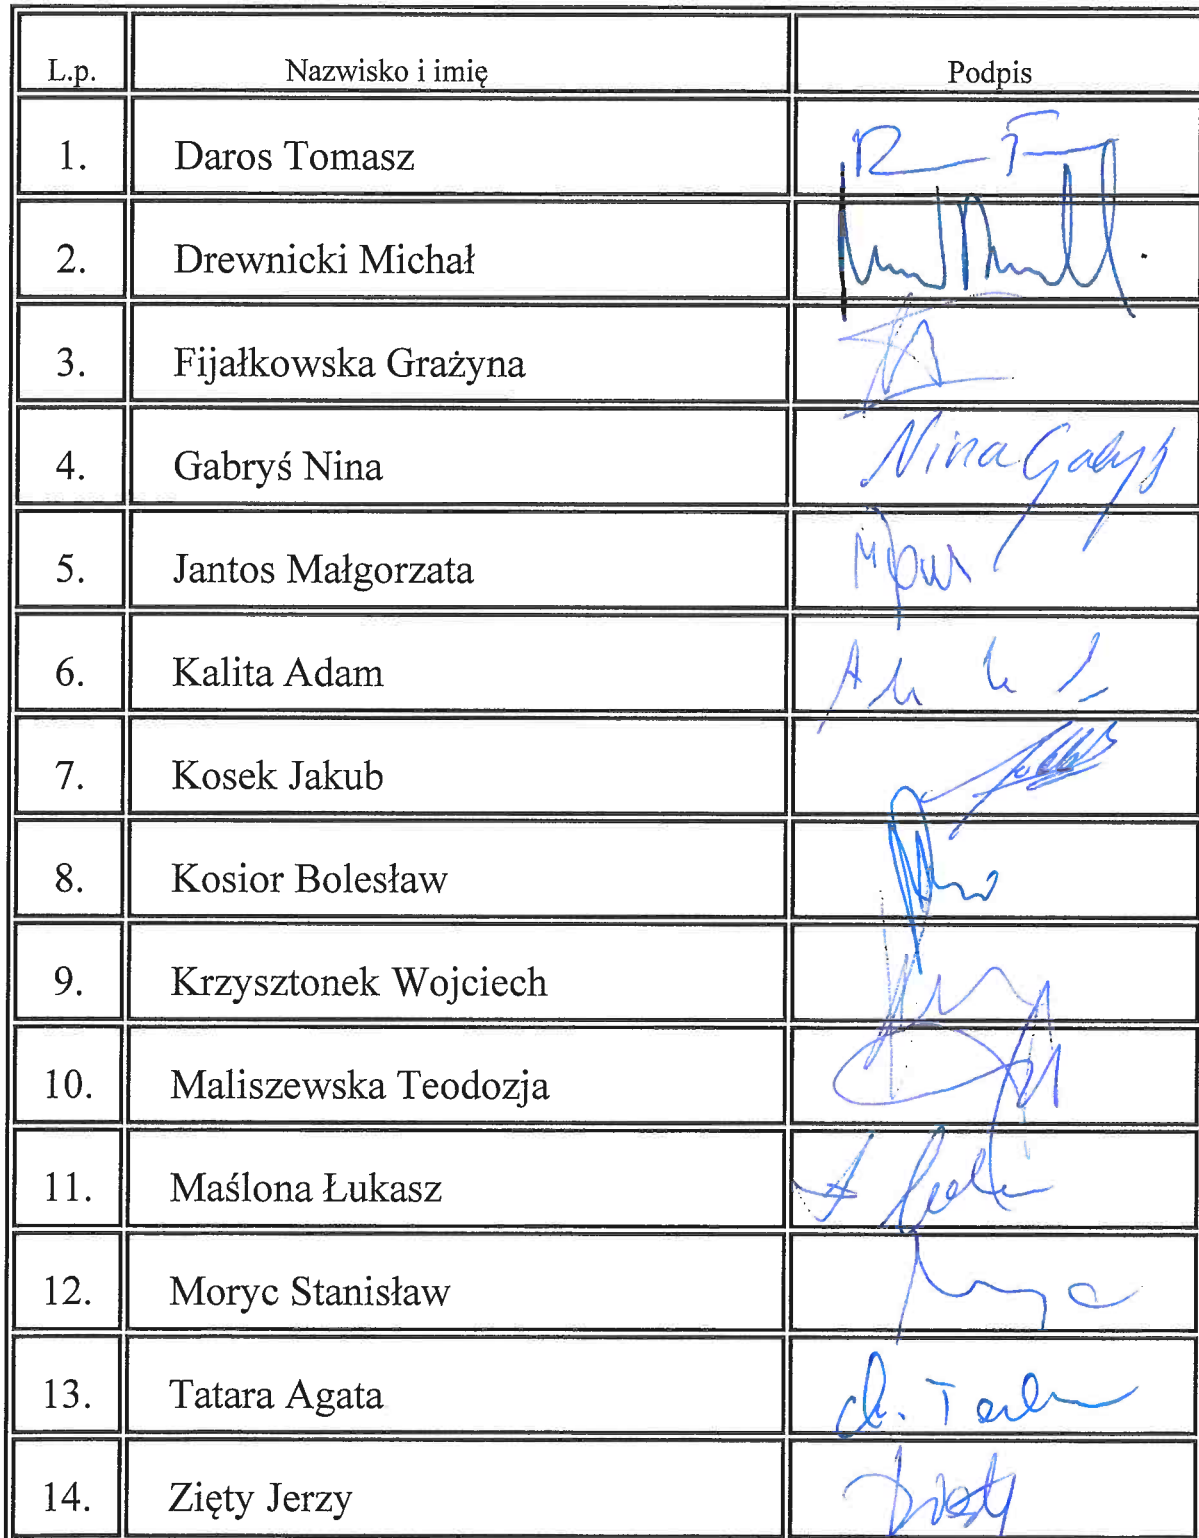 L.p. Nazwisko i imię Podpis
1. Daros Tomasz
2. Drewnicki Michał
3. Fijałkowska Grażyna
4. Gabryś Nina Nina Gabryś
5. Jantos Małgorzata
6. Kalita Adam
7. Kosek Jakub
8. Kosior Bolesław
9. Krzysztonek Wojciech
10. Maliszewska Teodozja
11. Maślona Łukasz
12. Moryc Stanisław
13. Tatara Agata
14. Zięty Jerzy Zięty